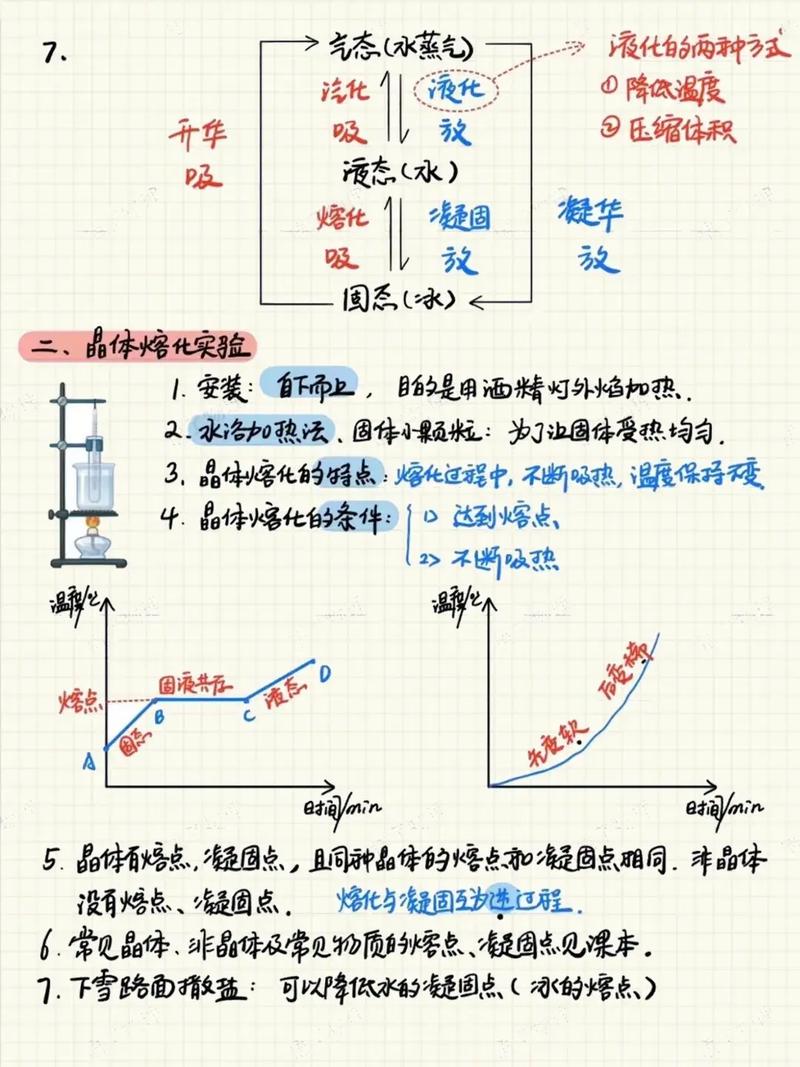 7.
气态(水蒸气)
液化的两种方式
汽化 液化
① 降低温度
升华 吸 放
② 压缩体积
吸
液态(水)
熔化 凝固 凝华
吸 放 放
固态(冰)
二、晶体熔化实验
1. 安装: 自下而上, 目的是用酒精灯外焰加热.
2. 水浴加热法、固体小颗粒: 为了让固体受热均匀.
3. 晶体熔化的特点: 熔化过程中, 不断吸热, 温度保持不变
4. 晶体熔化的条件: 1> 达到熔点、
2> 不断吸热
温度/℃
温度/℃
固液共存
熔点
B C D
液态
A 固态
先变软
后变稀
时间/min
时间/min
5. 晶体有熔点, 凝固点, 且同种晶体的熔点和凝固点相同. 非晶体
没有熔点、凝固点. 熔化与凝固互为逆过程.
6. 常见晶体、非晶体及常见物质的熔点、凝固点见课本.
7. 下雪路面撒盐: 可以降低水的凝固点(冰的熔点)